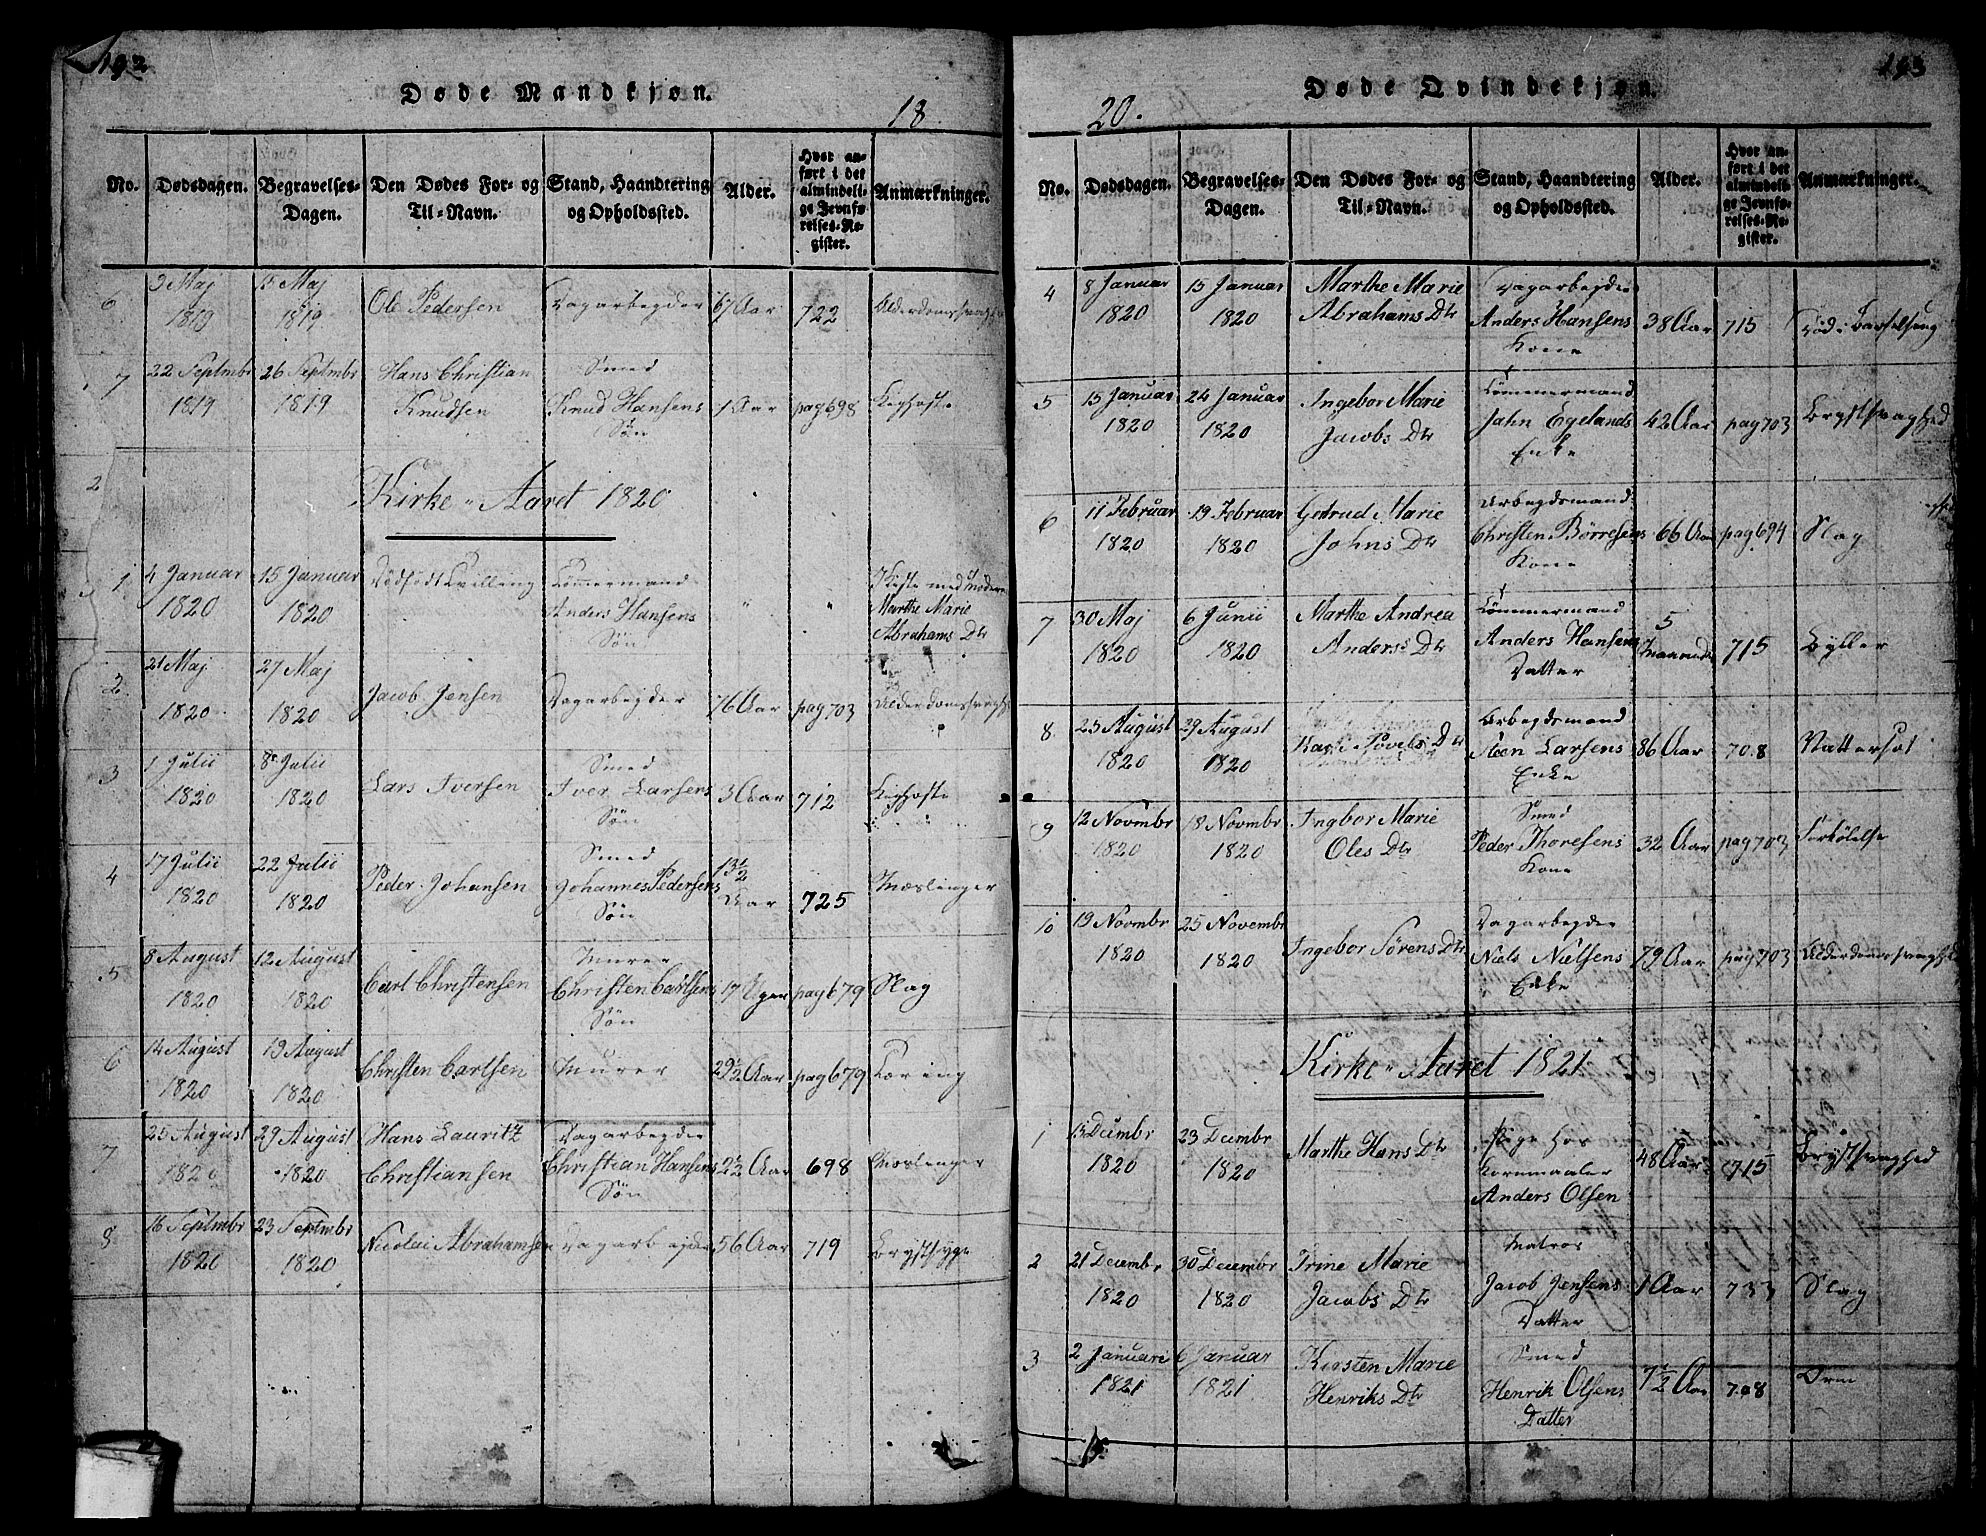 192
Døde Mandkjøn.
18
No.
Dødsdagen.
Begravelses-
Dagen.
Den Dødes For- og
Til-Navn.
Stand, Haandtering
og Opholdssted.
Alder.
Hvor an-
ført i det
almindeli-
ge Jevnfø-
relses-Re-
gister.
Anmærkninger.
6 3 Maj 1819 15 Maj 1819 Ole Pedersen Dagarbejder 67 Aar 722 Alderdomssvaghed
7 22 Septmbr 1819 26 Septmbr 1819 Hans Christian Knudsen Smed Knud Hansens Søn 1 Aar pag 698 Kighoste
Kirke-Aaret 1820
1 4 Januar 1820 15 Januar 1820 Dødfødt Tvilling Tømmermand Anders Hansens Søn " " I Kiste med Moderen Marthe Marie Abrahams Dtr
2 21 Maj 1820 27 Maj 1820 Jacob Jensen Dagarbejder 76 Aar pag 703 Alderdomssvaghed
3 1 Julii 1820 8 Julii 1820 Lars Iversen Smed Iver Larsens Søn 3 Aar 712 Kighoste
4 17 Julii 1820 22 Julii 1820 Peder Johansen Smed Johannes Pedersens Søn 13½ Aar 725 Mæslinger
5 8 August 1820 12 August 1820 Carl Christensen Murer Christen Carlsens Søn 17 Uger pag 679 Slag
6 14 August 1820 19 August 1820 Christen Carlsen Murer 29½ Aar pag 679 Tæring
7 25 August 1820 29 August 1820 Hans Lauritz Christiansen Dagarbejder Christian Hansens Søn 2½ Aar 698 Mæslinger
8 16 Septmbr 1820 23 Septmbr 1820 Nicolai Abrahamsen Dagarbejder 56 Aar 719 Brystsyge
193
Døde Qvindekjøn.
20.
No.
Dødsdagen.
Begravelses-
Dagen.
Den Dødes For- og
Til-Navn.
Stand, Haandtering
og Opholdssted.
Alder.
Hvor an-
ført i det
almindeli-
ge Jevnfø-
relses-Re-
gister.
Anmærkninger.
4 8 Januar 1820 15 Januar 1820 Marthe Marie Abrahams Dtr Dagarbejder Anders Hansens Kone 38 Aar 715 Død i Barselseng
5 15 Januar 1820 24 Januar 1820 Ingebor Marie Jacobs Dtr Tømmermand Jahn Egelands Enke 42 Aar pag 703 Brystsvaghed
6 11 Februar 1820 19 Februar 1820 Gertrud Marie Johns Dtr Arbejdsmand Christen Børresens Kone 66 Aar pag 694 Slag
7 30 Maj 1820 6 Junii 1820 Marthe Andrea Anders Dtr Tømmermand Anders Hansens Datter 5 Maaneder 715 Bylder
8 23 August 1820 29 August 1820 Kari Povels Dtr Arbejdsmand Steen Larsens Enke 86 Aar 708 Vattersot
9 12 Novmbr 1820 18 Novmbr 1820 Ingbor Marie Oles Dtr Smed Peder Thoresens Kone 32 Aar pag 703 Forkølelse
10 19 Novmbr 1820 25 Novembr 1820 Ingebor Sørens Dtr Dagarbejder Niels Nielsens Enke 79 Aar pag 703 Alderdomssvaghed
Kirke-Aaret 1821
1 15 Decmbr 1820 23 Decmbr 1820 Marthe Hans Dtr Pige hos Kornmaaler Anders Olsen 48 Aar 715 Brystsvaghed
2 21 Decembr 1820 30 Decembr 1820 Trine Marie Jacobs Dtr Matros Jacob Jensens Datter 1 Aar 733 Slag
3 2 Januari 1821 6 Januar 1821 Kirsten Marie Henriks Dtr Smed Henrik Olsens Datter 7½ Aar 708 Orm